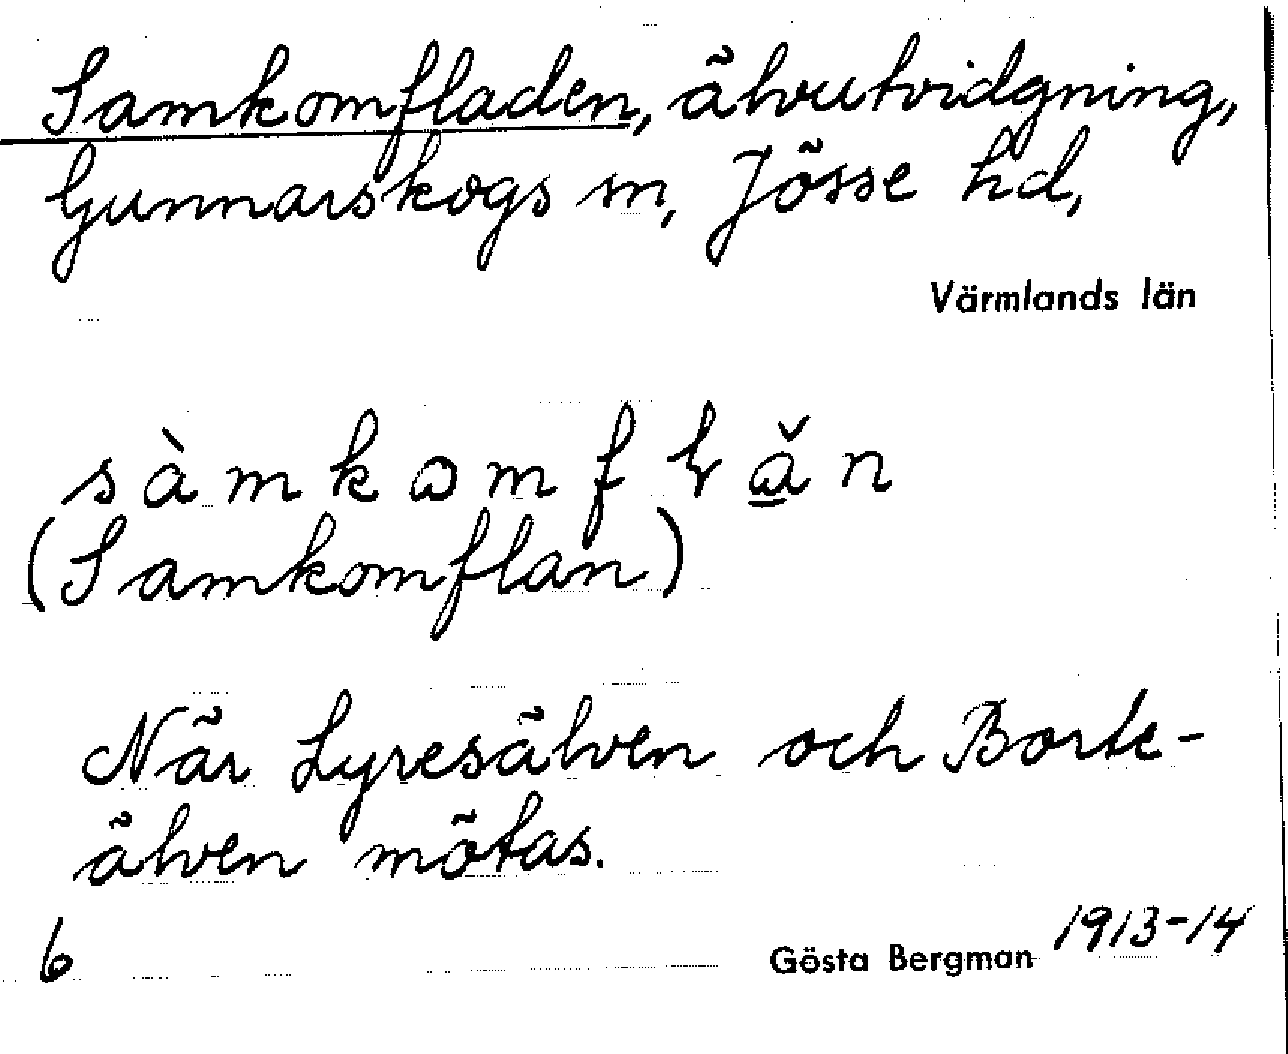 Samkomfladen, älvutvidgning,
Gunnarskogs sn, Jösse hd,
Värmlands län
sàmkomflǎn
(Samkomflan)
När Lyresälven och Borte-
älven mötas.
6
Gösta Bergman 1913-14